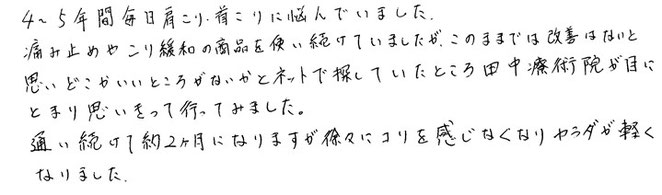 4～5年間毎日肩こり・首こりに悩んでいました。
痛み止めやこり緩和の商品を使い続けていましたが、このままでは改善はないと
思いどこかいいところがないかとネットで探していたところ田中療術院が目に
とまり思いきって行ってみました。
通い続けて約2ヶ月になりますが徐々にコリを感じなくなりカラダが軽く
なりました。